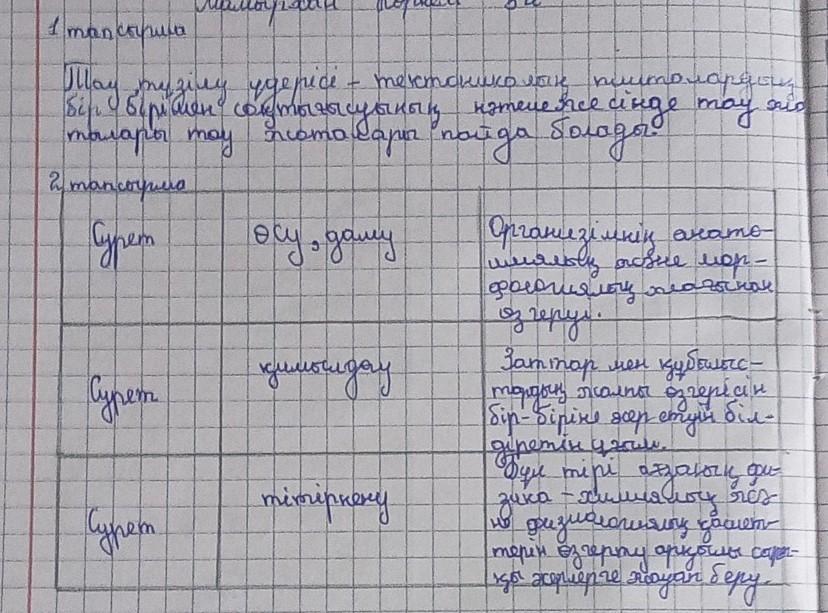 1 тапсырма
Тау түзілу үдерісі - тектоникалық плиталардың
бір бірімен соқтығысуының нәтижесінде тау жо
талары тау жоталары пайда болады.
2 тапсырма
Сурет
өсу, даму
Организімнің анато-
миялық және мор-
фологиялық жағынан
өзгеруі.
Сурет
қимылдау
Заттар мен құбылыс-
тардың жалпы өзгерісін
бір-біріне әсер етуін біл-
діретін ұғым.
Сурет
тітіркену
Бұл тірі ағзаның фи-
зика-химиялық жә-
не физиологиялық қасиет-
терін өзгерту арқылы сыртқы
әсерлерге жауап беру.